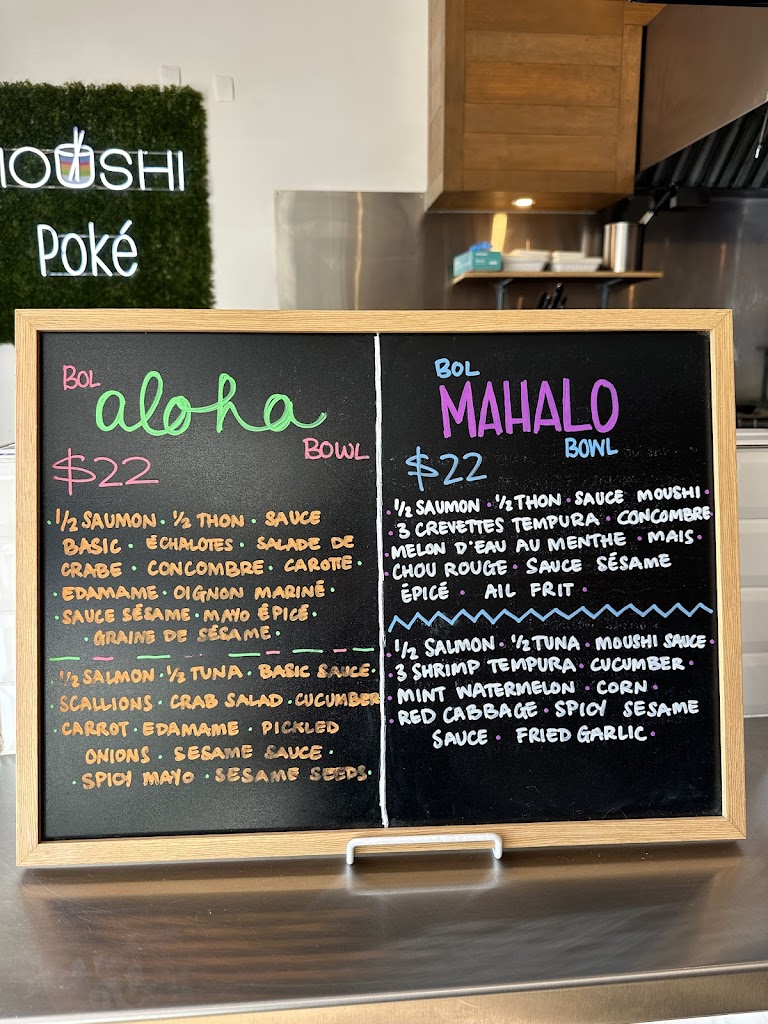 MOUSHI
Poké
BOL
aloha
BOWL
$22
1/2 SAUMON · 1/2 THON · SAUCE
BASIC · ÉCHALOTES · SALADE DE
CRABE · CONCOMBRE · CAROTTE ·
· EDAMAME · OIGNON MARINÉ ·
· SAUCE SÉSAME · MAYO ÉPICÉ ·
· GRAINE DE SÉSAME ·
· 1/2 SALMON · 1/2 TUNA · BASIC SAUCE ·
SCALLIONS · CRAB SALAD · CUCUMBER
· CARROT · EDAMAME · PICKLED
ONIONS · SESAME SAUCE ·
· SPICY MAYO · SESAME SEEDS ·
BOL
MAHALO
BOWL
$22
· 1/2 SAUMON · 1/2 THON · SAUCE MOUSHI ·
· 3 CREVETTES TEMPURA · CONCOMBRE
MELON D'EAU AU MENTHE · MAIS ·
CHOU ROUGE · SAUCE SÉSAME
ÉPICÉ · AIL FRIT ·
1/2 SALMON · 1/2 TUNA · MOUSHI SAUCE ·
3 SHRIMP TEMPURA · CUCUMBER ·
· MINT WATERMELON · CORN ·
· RED CABBAGE · SPICY SESAME
SAUCE · FRIED GARLIC ·